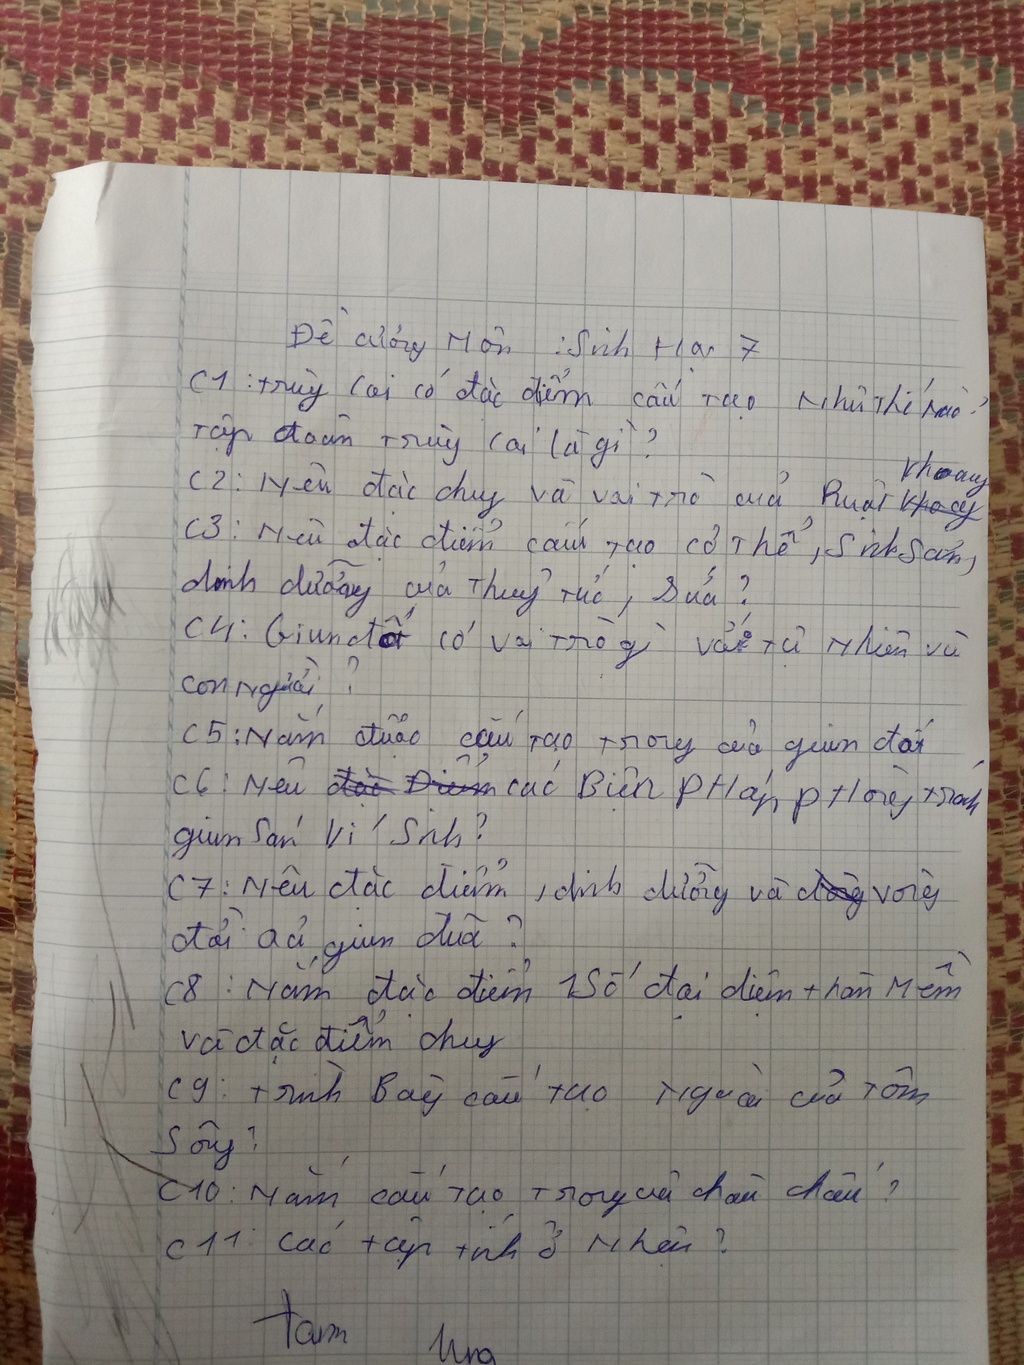 Đề cương Môn : Sinh Học 7
C1 : trùng roi có đặc điểm cấu tạo như thế nào?
tập đoàn trùng roi là gì ?
C2 : Nêu đặc chung và vai trò của Ruột khoang
C3 : Nêu đặc điểm cấu tạo cơ thể, Sinh Sản,
dinh dưỡng của thuỷ tức, Sứa ?
C4 : Giun đất có vai trò gì với tự nhiên và
con người ?
C5 : Nắm được cấu tạo trong của giun đất
C6 : Nêu đặc Điểm các Biện pháp phòng tránh
giun Sán kí Sinh ?
C7 : Nêu đặc điểm, dinh dưỡng và vòng
đời của giun đũa ?
C8 : Nắm đặc điểm 1 Số đại diện thân Mềm
và đặc điểm chung
C9 : trình Bày cấu tạo ngoài của tôm
Sông ?
C10 : Nắm cấu tạo trong của châu chấu ?
C11 : các tập tính ở Nhện ?
Tam